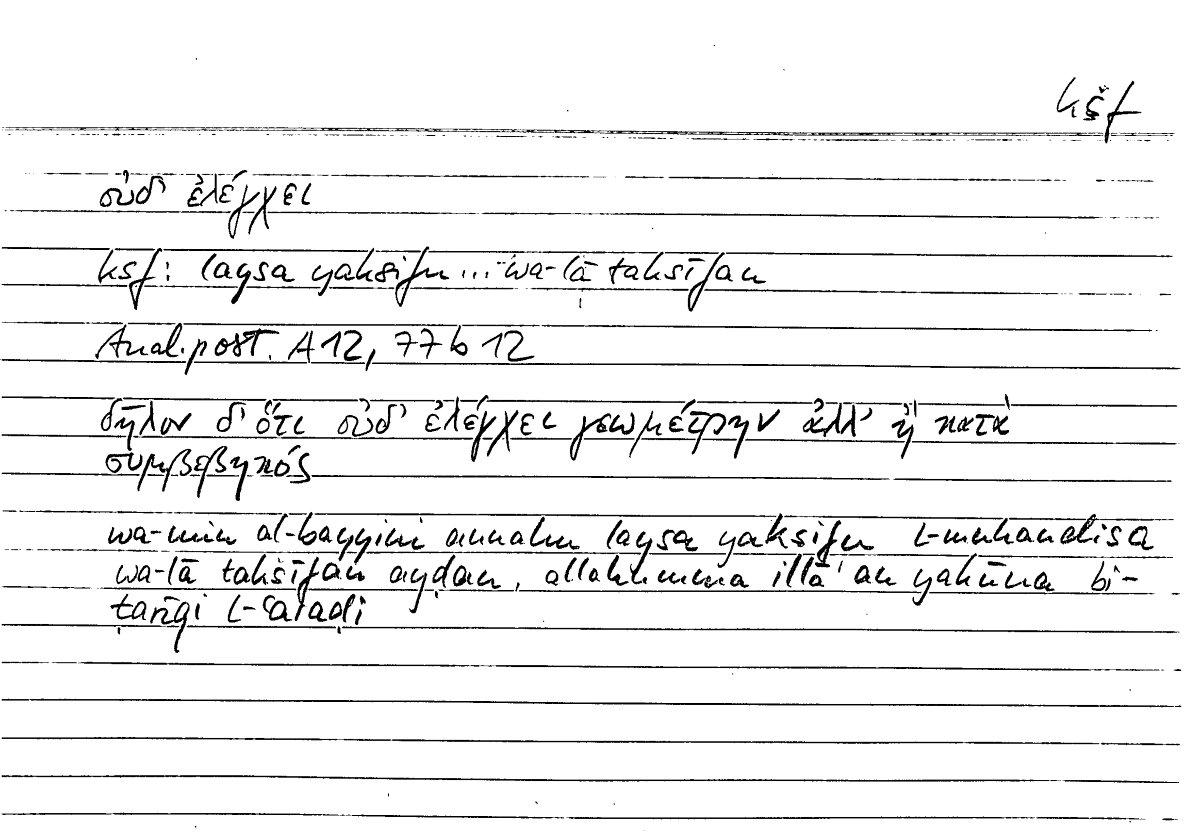 kšf
οὐδ' ἐλέγχει
ksf: laysa yaksifu ... wa-lā taksīfan
Anal. post. A 12, 77 b 12
δῆλον δ' ὅτι οὐδ' ἐλέγχει γεωμέτρην ἀλλ' ἢ κατὰ
συμβεβηκός
wa-min al-bayyini annahu laysa yaksifu l-muhandisa
wa-lā taksīfan ayḍan, allahumma illā an yakūna bi-
ṭarīqi l-ʿaraḍi